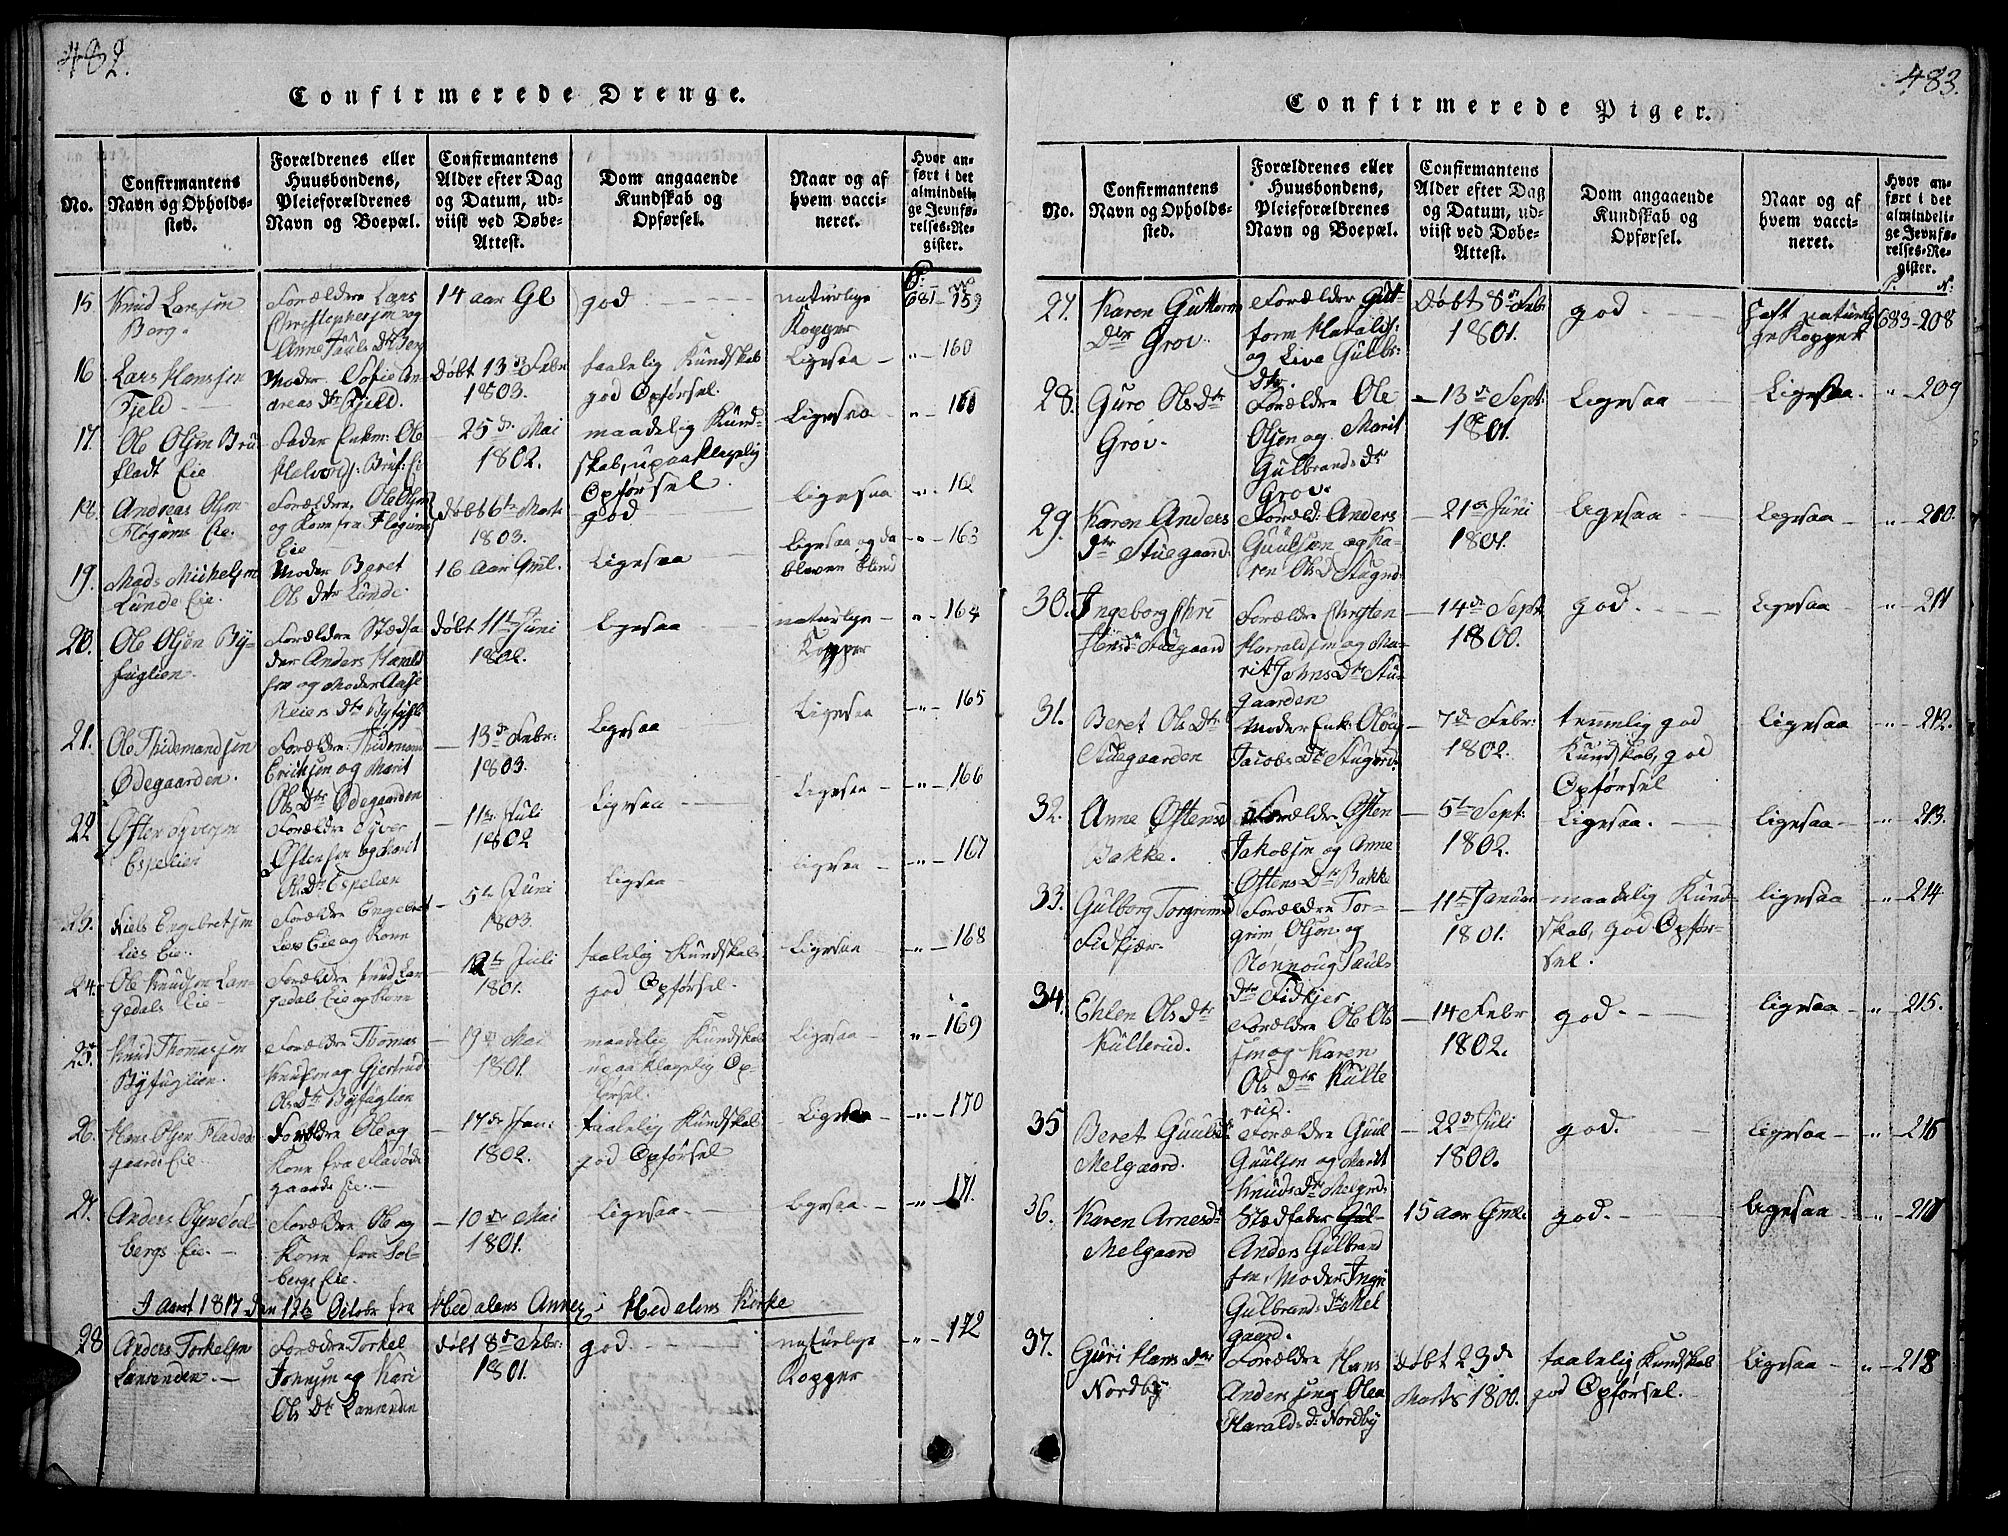 482.
Confirmerede Drenge.
No.
Confirmantens
Navn og Opholds-
sted.
Forældrenes eller
Huusbondens,
Pleieforældrenes
Navn og Boepæl.
Confirmantens
Alder efter Dag
og Datum, ud-
viist ved Døbe-
Attest.
Dom angaaende
Kundskab og
Opførsel.
Naar og af
hvem vacci-
neret.
Hvor an-
ført i det
almindeli-
ge Jevnfø-
relses-Re-
gister.
15 Knud Larssen
Berg.
Forældre Lars
Christophersen og
Anne Pauls Dtr Berg
14 aar Gl
god
naturlige
Kopper
681-159
16 Lars Hanssen
Fjeld
Moder Sofie An
dreas Dtr Fjeld.
Døbt 13de Febr
1803.
taalelig Kundskab
god Opførsel.
Ligesaa
" 160
17. Ole Olsen Bru
fladt Eie
Fader Enkm: Ole
Halvords: Bruf: Ei
25de Mai
1802.
maadelig Kund-
skab, upaaklagelig
Opførsel
Ligesaa
" 161
18. Andreas Olsen
Fløgums Eie.
Forældre, Ole Olsen
og Kone fra Fløgums
Eie
Døbt 6te Marts
1803.
god
Ligesaa
" 162
19. Mads Michelsen
Lunde Eie.
Moder Beret
Ols Dtr Lunde.
16 Aar Gml.
Ligesaa
Ligesaa og da
bleven blind
" 163
20. Ole Olsen By-
fuglien.
Forældre Stedfa
der Anders Harald
sen og Moder Aase
Reiers Dtr Byfuglie
Døbt 11te Juni
1802.
Ligesaa
naturlige
Kopper
" 164
21. Ole Thidemandsen
Ødegaarden.
Forældre: Thidemand
Erichsen og Marit
Ols Dtr Ødegaarden
13de Febr:
1803.
Ligesaa
Ligesaa
" 165
22 Østen Syversen
Espelien
Forældre Syver
Østensen og Marit
Ols Dtr Espelien
11te Juli
1802
Ligesaa
Ligesaa
" 166
23. Niels Engebretsen
Lies Eie.
Forældre Engebret
Lies Eie og Kone
5te Juni
1803.
Ligesaa
Ligesaa
" 167
24. Ole Knudsen Lan-
gedals Eie
Forældre Knud Lan-
gedals Eie og Kone
12te Juli
1801.
taalelig Kundskab
god Opførsel.
Ligesaa
" 168
25. Knud Thomassen
Byfuglien.
Forældre Thomas
Knudsen og Gjertrud
Ols Dtr Byfuglien
19de Mai
1801.
maadelig Kundskab
upaaklagelig Op-
førsel.
Ligesaa
" 169
26. Hans Olsen Fladed
gaards Eie.
Forældre Ole og
Kone fra Fladød
gaards Eie.
17de Jan:
1802.
taalelig Kundskab
god Opførsel
Ligesaa
" 170
27. Anders Olsen Sol-
bergs Eie.
Forældre Ole og
Kone fra Sol-
bergs Eie.
10de Mai
1801.
Ligesaa.
Ligesaa.
" 171.
I aaret 1817 den 12te Octobr fra Hedalens Annex i Hedalens Kirke
28 Anders Torkelsen
Lansenden.
Forældre Torkel
Jonnsen og Kari
Ols Dtr Lansenden
Døbt 8de Febr:
1801.
god.
naturlige
Kopper
" 172
483.
Confirmerede Piger.
No.
Confirmantens
Navn og Opholds-
sted.
Forældrenes eller
Huusbondens,
Pleieforældrenes
Navn og Boepæl.
Confirmantens
Alder efter Dag
og Datum, ud-
viist ved Døbe-
Attest.
Dom angaaende
Kundskab og
Opførsel.
Naar og af
hvem vacci-
neret.
Hvor an-
ført i det
almindeli-
ge Jevnfø-
relses-Re-
gister.
27. Karen Guttorm
Dtr Grov.
Forælder Gut-
torm Haralds:
og Live Gulbr:
Dtr.
Døbt 8de Febr
1801.
god
Haft naturlig
ge Kopper
683-208
28. Guro Ols Dtr
Grov.
Forældre Ole
Olsen og Marit
Gulbrands Dtr
Grov.
13de Sept:
1801.
Ligesaa
Ligesaa.
" 209
29. Karen Anders
Dtr Stuegaard.
Foræld: Anders
Guulsen og Ka-
ren Ols D Stugrd:
21de Juni
1801.
Ligesaa
Ligesaa
" 210.
30. Ingeborg Chri
stens D Stuegaard
Forældre Christen
Harraldsen og Ma-
rit Johns Dtr Stue
gaarden
14de Sept
1800.
god.
Ligesaa
" 211
31. Beret Ols Dtr
Stuegaarden
Moder Enk: Oloug
Jacobs Dtr Stugrd.
7de Febr:
1802.
temmelig god
Kundskab, god
Opførsel
Ligesaa
" 212.
32. Anne Østens D
Bakke.
Forældre Østen
Jakobsen og Anne
Østens Dtr Bakke
5te Sept:
1802.
Ligesaa.
Ligesaa
" 213.
33. Gulborg Torgrims D
Fidkjær.
Forældre Tor-
grim Olsen og
Rønnoug Pauls
Dtr Fidkjer.
11te Januar
1801.
maadelig Kund-
skab, god Opfør-
sel.
Ligesaa
" 214
34. Ehlen Ols Dtr
Kulterud.
Forældre Ole Ols
sen og Karen
Ols Dtr Kulte
rud.
14 Febr
1802.
god.
Ligesaa
" 215.
35 Beret Guuls D
Melgaard.
Forældre Guul
Guulsen og Marit
Knuds Dtr Melgrd:
22de Juli
1800.
god.
Ligesaa
" 216
36. Karen Arnes D
Melgaard
Stedfader Gul-
Anders Gulbrand
sen, Moder Ingri
Gulbrands Dtr Mel
gaard.
15 aar Gml:
god.
Ligesaa
" 217
37. Guri Hans Dtr
Nordby
Forældre Hans
Anders sen og Olea
Haralds D Nordby
Døbt 23de
Marts 1800.
taalelig Kundskab
god Opførsel.
Ligesaa
" 218